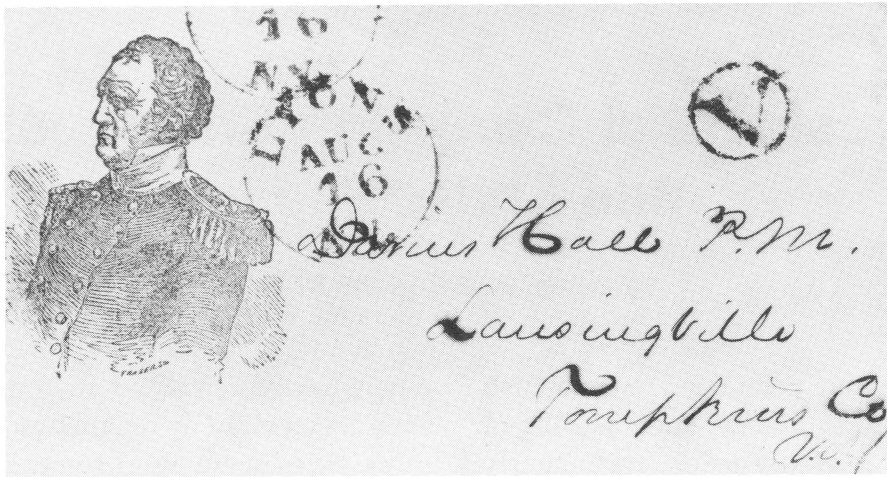 16
N.Y.
LYONS
AUG
16
N.Y.
Darius Hall P.M.
Lansingville
Tompkins Co
N.Y.